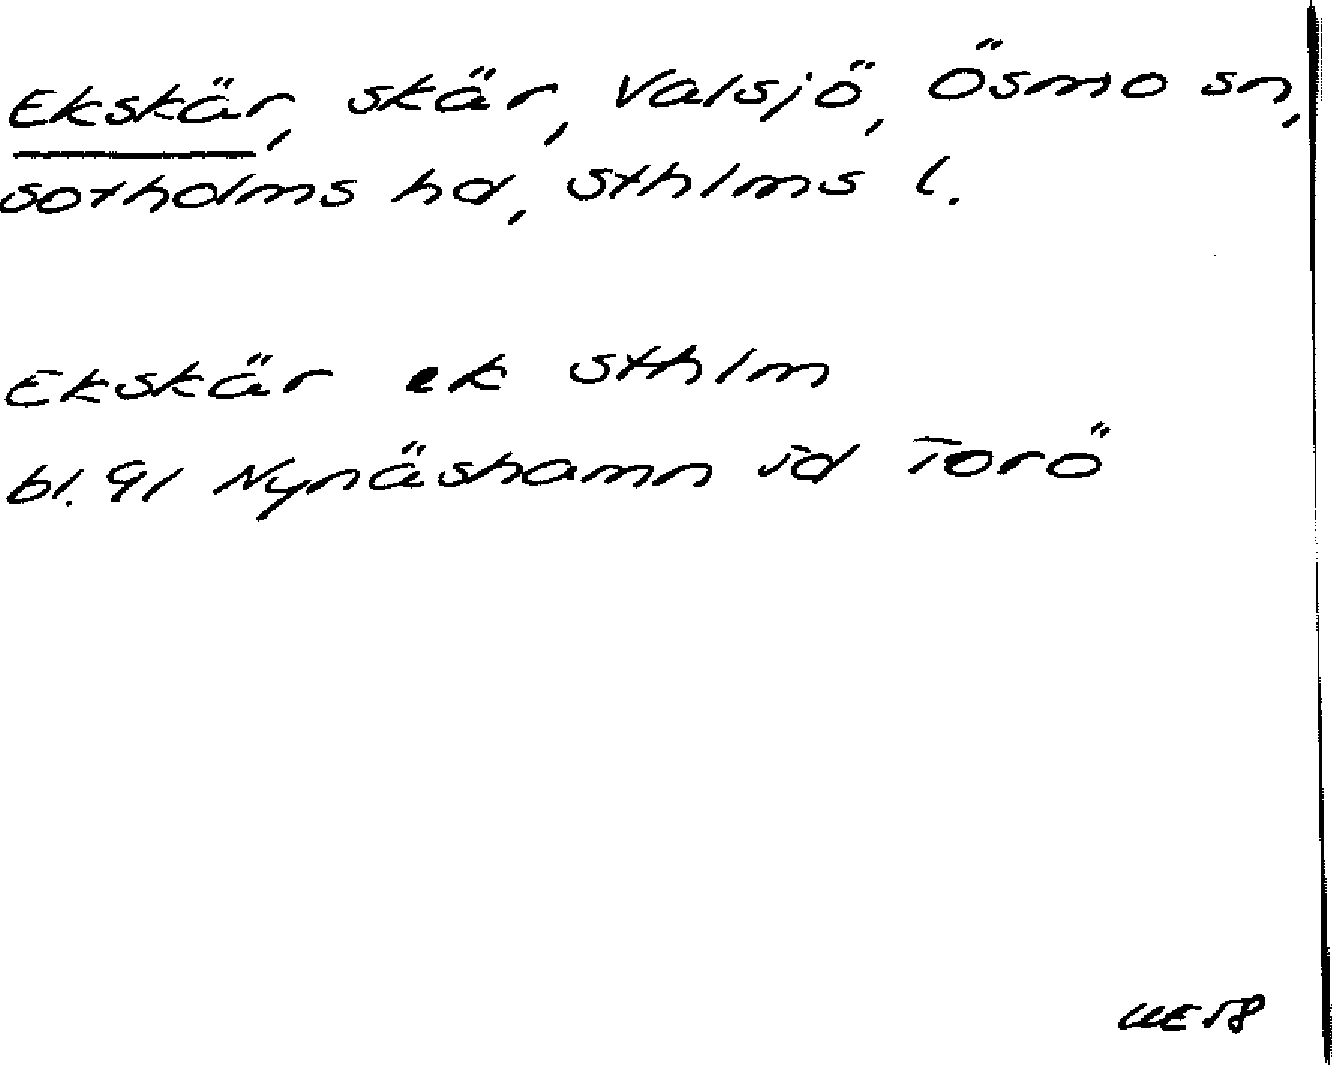 Ekskär, skär, Valsjö, Ösmo sn,
Sotholms hd, Sthlms l.
Ekskär ek Sthlm
bl. 91 Nynäshamn Torö